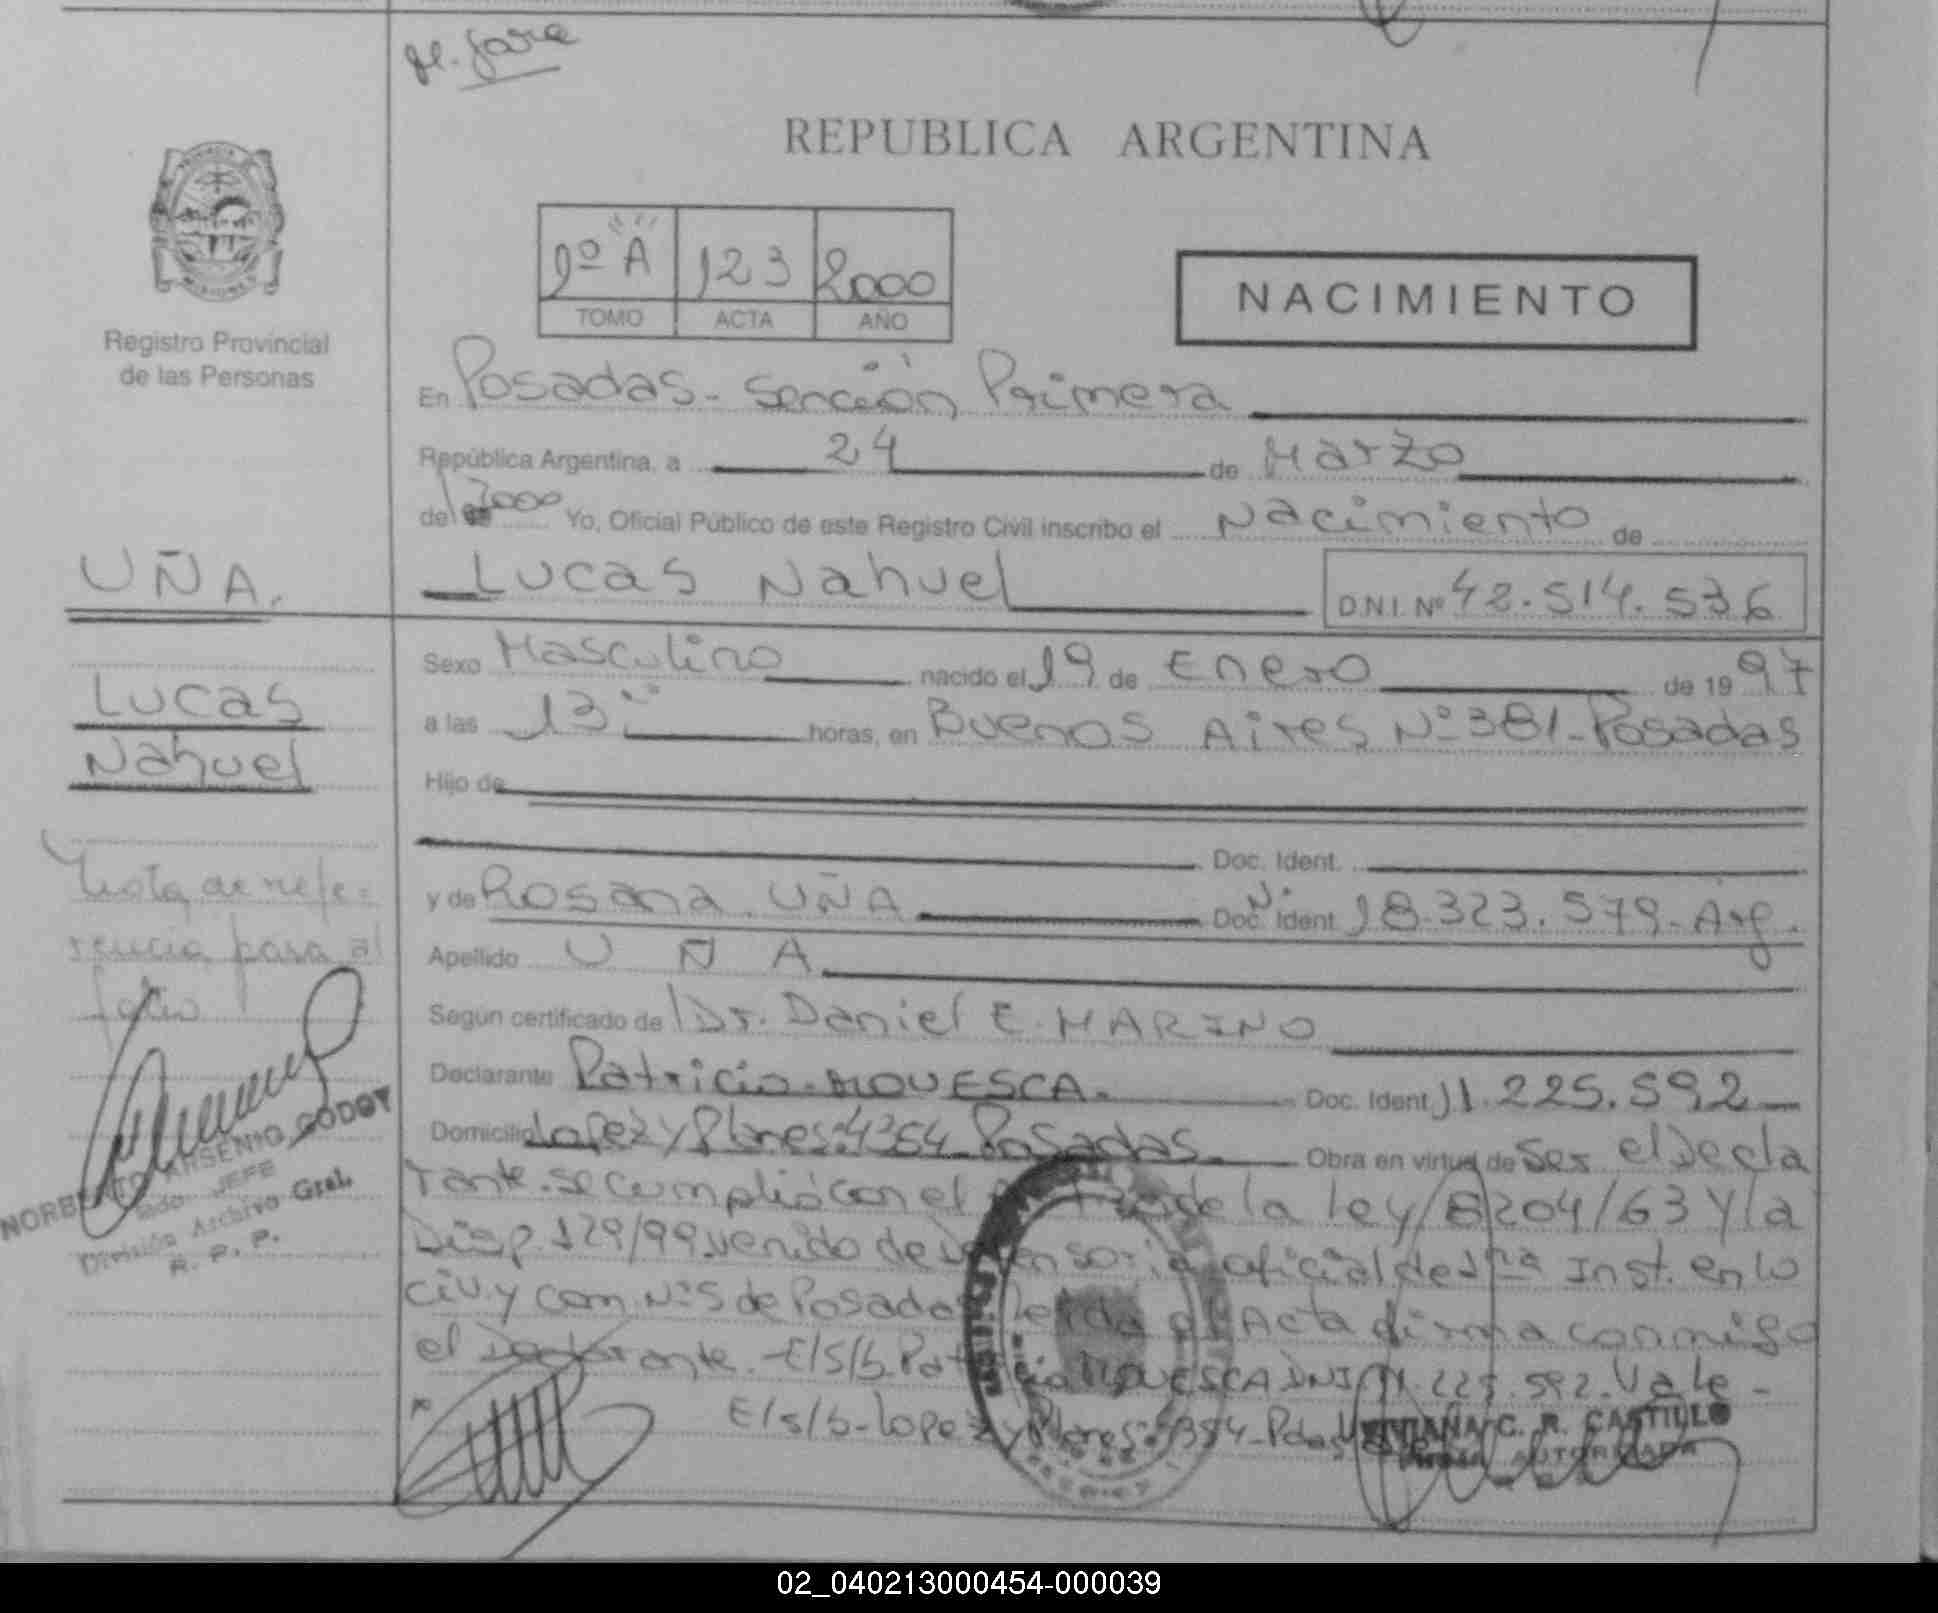 REPUBLICA ARGENTINA
1º "A" 123 2000
TOMO ACTA AÑO
NACIMIENTO
Registro Provincial
de las Personas
En Posadas - Sección Primera
República Argentina, a 24 de Marzo
de 2000 Yo, Oficial Público de este Registro Civil inscribo el Nacimiento de
UÑA.
Lucas Nahuel D.N.I. Nº 42.514.536
Sexo Masculino nacido el 19 de Enero de 1997
Lucas
a las 13 horas, en Buenos Aires Nº 381 - Posadas
Nahuel
Hijo de
Doc. Ident.
Nota de refe=
y de Rosana UÑA Doc. Ident. 18.323.579 - Arg.
rencia para al
Apellido UÑA
Según certificado de Dr. Daniel E. MARINO
Declarante Patricia MOUESCA. Doc. Ident. 11.225.592
NORBERTO ARSENIO GODOY
JEFE
División Archivo Gral.
R. P. P.
Domicilio Lopez y Planes: 4354 - Posadas. Obra en virtud de ser el Decla
rante. se cumplió con el de la ley 8204/63 y la
Disp. 129/99 venido de Defensoria oficial de 1ra Inst. en lo
civ. y com. Nº 5 de Posadas Leída el Acta firma conmigo
el Declarante. - E/S/b. Patricia MOUESCA DNI 11.225.592. Vale -
E/s/b - Lopez y Planes: 4354 - Pdas
VIVIANA C. R. CASTILLO
AUTORIZADA
02_040213000454-000039